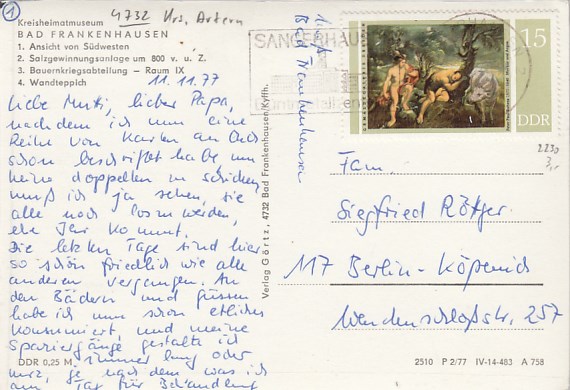 1
4732 Krs. Artern
Kreisheimatmuseum
BAD FRANKENHAUSEN
1. Ansicht von Südwesten
2. Salzgewinnungsanlage um 800 v. u. Z.
3. Bauernkriegsabteilung – Raum IX
4. Wandteppich
11.11.77
Liebe Mutti, lieber Papa,
nachdem ich nun eine
Reihe von Karten an Euch
schon beschriftet habe um
keine doppelten zu schicken,
muß ich ja sehen, sie
alle noch loszuwerden,
ehe Ihr kommt.
Die letzten Tage sind hier
so schön friedlich wie alle
anderen vergangen. An
den Bädern und Güssen
habe ich nun schon etliches
konsumiert, und meine
Spaziergänge gestalte ich
immer lang oder
kurz, je nach dem was ich
am Tag für Behandlung
DDR 0,25 M
Verlag Görtz, 4732 Bad Frankenhausen/Kyffh.
Bad Frankenhausen
SANGERHAUSEN
15
DDR
2230
3,-
Fam.
Siegfried Röttger
117 Berlin-Köpenick
Wendenschloßstr. 257
2510 P 2/77 IV-14-483 A 758